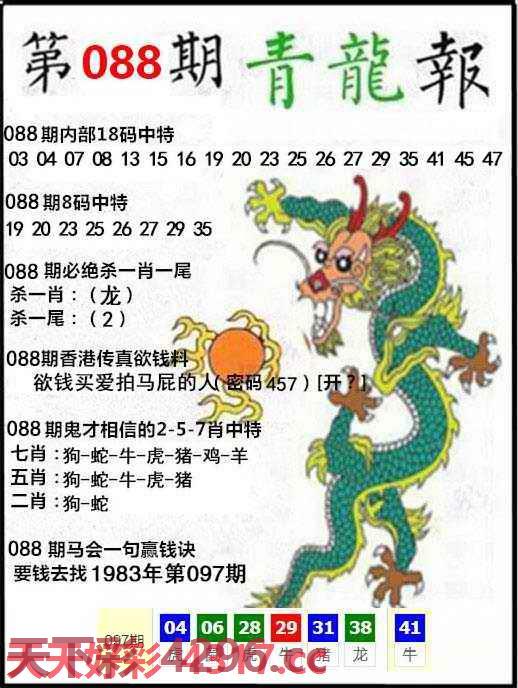 第088期 青龍報
088期内部18码中特
03 04 07 08 13 15 16 19 20 23 25 26 27 29 35 41 45 47
088期8码中特
19 20 23 25 26 27 29 35
088 期必绝杀一肖一尾
杀一肖：（龙）
杀一尾：（2）
088期香港传真欲钱料
欲钱买爱拍马屁的人(密码457)[开?]
088期鬼才相信的2-5-7肖中特
七肖：狗-蛇-牛-虎-猪-鸡-羊
五肖：狗-蛇-牛-虎-猪
二肖：狗-蛇
088 期马会一句赢钱诀
要钱去找1983年第097期
097期 04 06 28 29 31 38 41
虎 牛 猪 龙 牛
天下好彩44397.cc